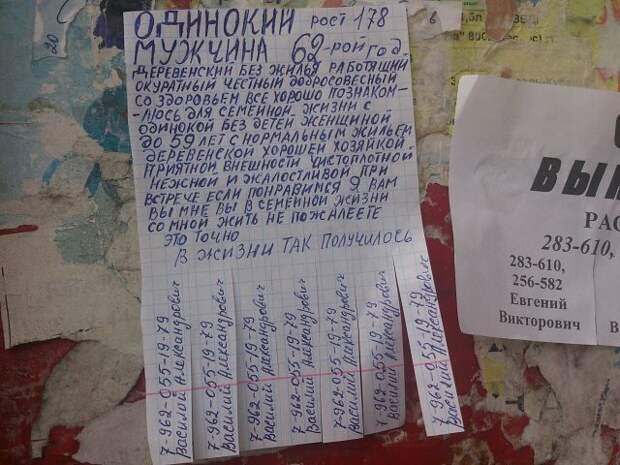 ОДИНОКИЙ РОСТ 178
МУЖЧИНА 62-РОЙ ГОД.
ДЕРЕВЕНСКИЙ БЕЗ ЖИЛЬЯ РАБОТЯЩИЙ
ОКУРАТНЫЙ ЧЕСТНЫЙ ДОБРОСОВЕСНЫЙ
СО ЗДОРОВЬЕМ ВСЕ ХОРОШО ПОЗНАКОМ-
-ЛЮСЬ ДЛЯ СЕМЕЙНОЙ ЖИЗНИ С
ОДИНОКОЙ БЕЗ ДЕТЕЙ ЖЕНЩИНОЙ
ДО 59 ЛЕТ С НОРМАЛЬНЫМ ЖИЛЬЕМ
ДЕРЕВЕНСКОЙ ХОРОШЕЙ ХОЗЯЙКОЙ
ПРИЯТНОЙ ВНЕШНОСТИ ЧИСТОПЛОТНОЙ
НЕЖНОЙ И ЖАЛОСТЛИВОЙ ПРИ
ВСТРЕЧЕ ЕСЛИ ПОНРАВИМСЯ Я ВАМ
ВЫ МНЕ ВЫ В СЕМЕЙНОЙ ЖИЗНИ
СО МНОЙ ЖИТЬ НЕ ПОЖАЛЕЕТЕ
ЭТО ТОЧНО
В ЖИЗНИ ТАК ПОЛУЧИЛОСЬ
7-962-055-19-79
Василий Александрович
7-962-055-19-79
Василий Александрович
7-962-055-19-79
Василий Александрович
7-962-055-19-79
Василий Александрович
7-962-055-19-79
Василий Александрович
7-962-055-19-79
Василий Александрович
7-962-055-19-79
Василий Александрович
ВЫ
РАС
283-610,
283-610,
256-582
Евгений
Викторович